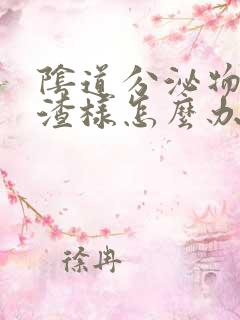 陰道分泌物
渣樣怎麼办
徐冉